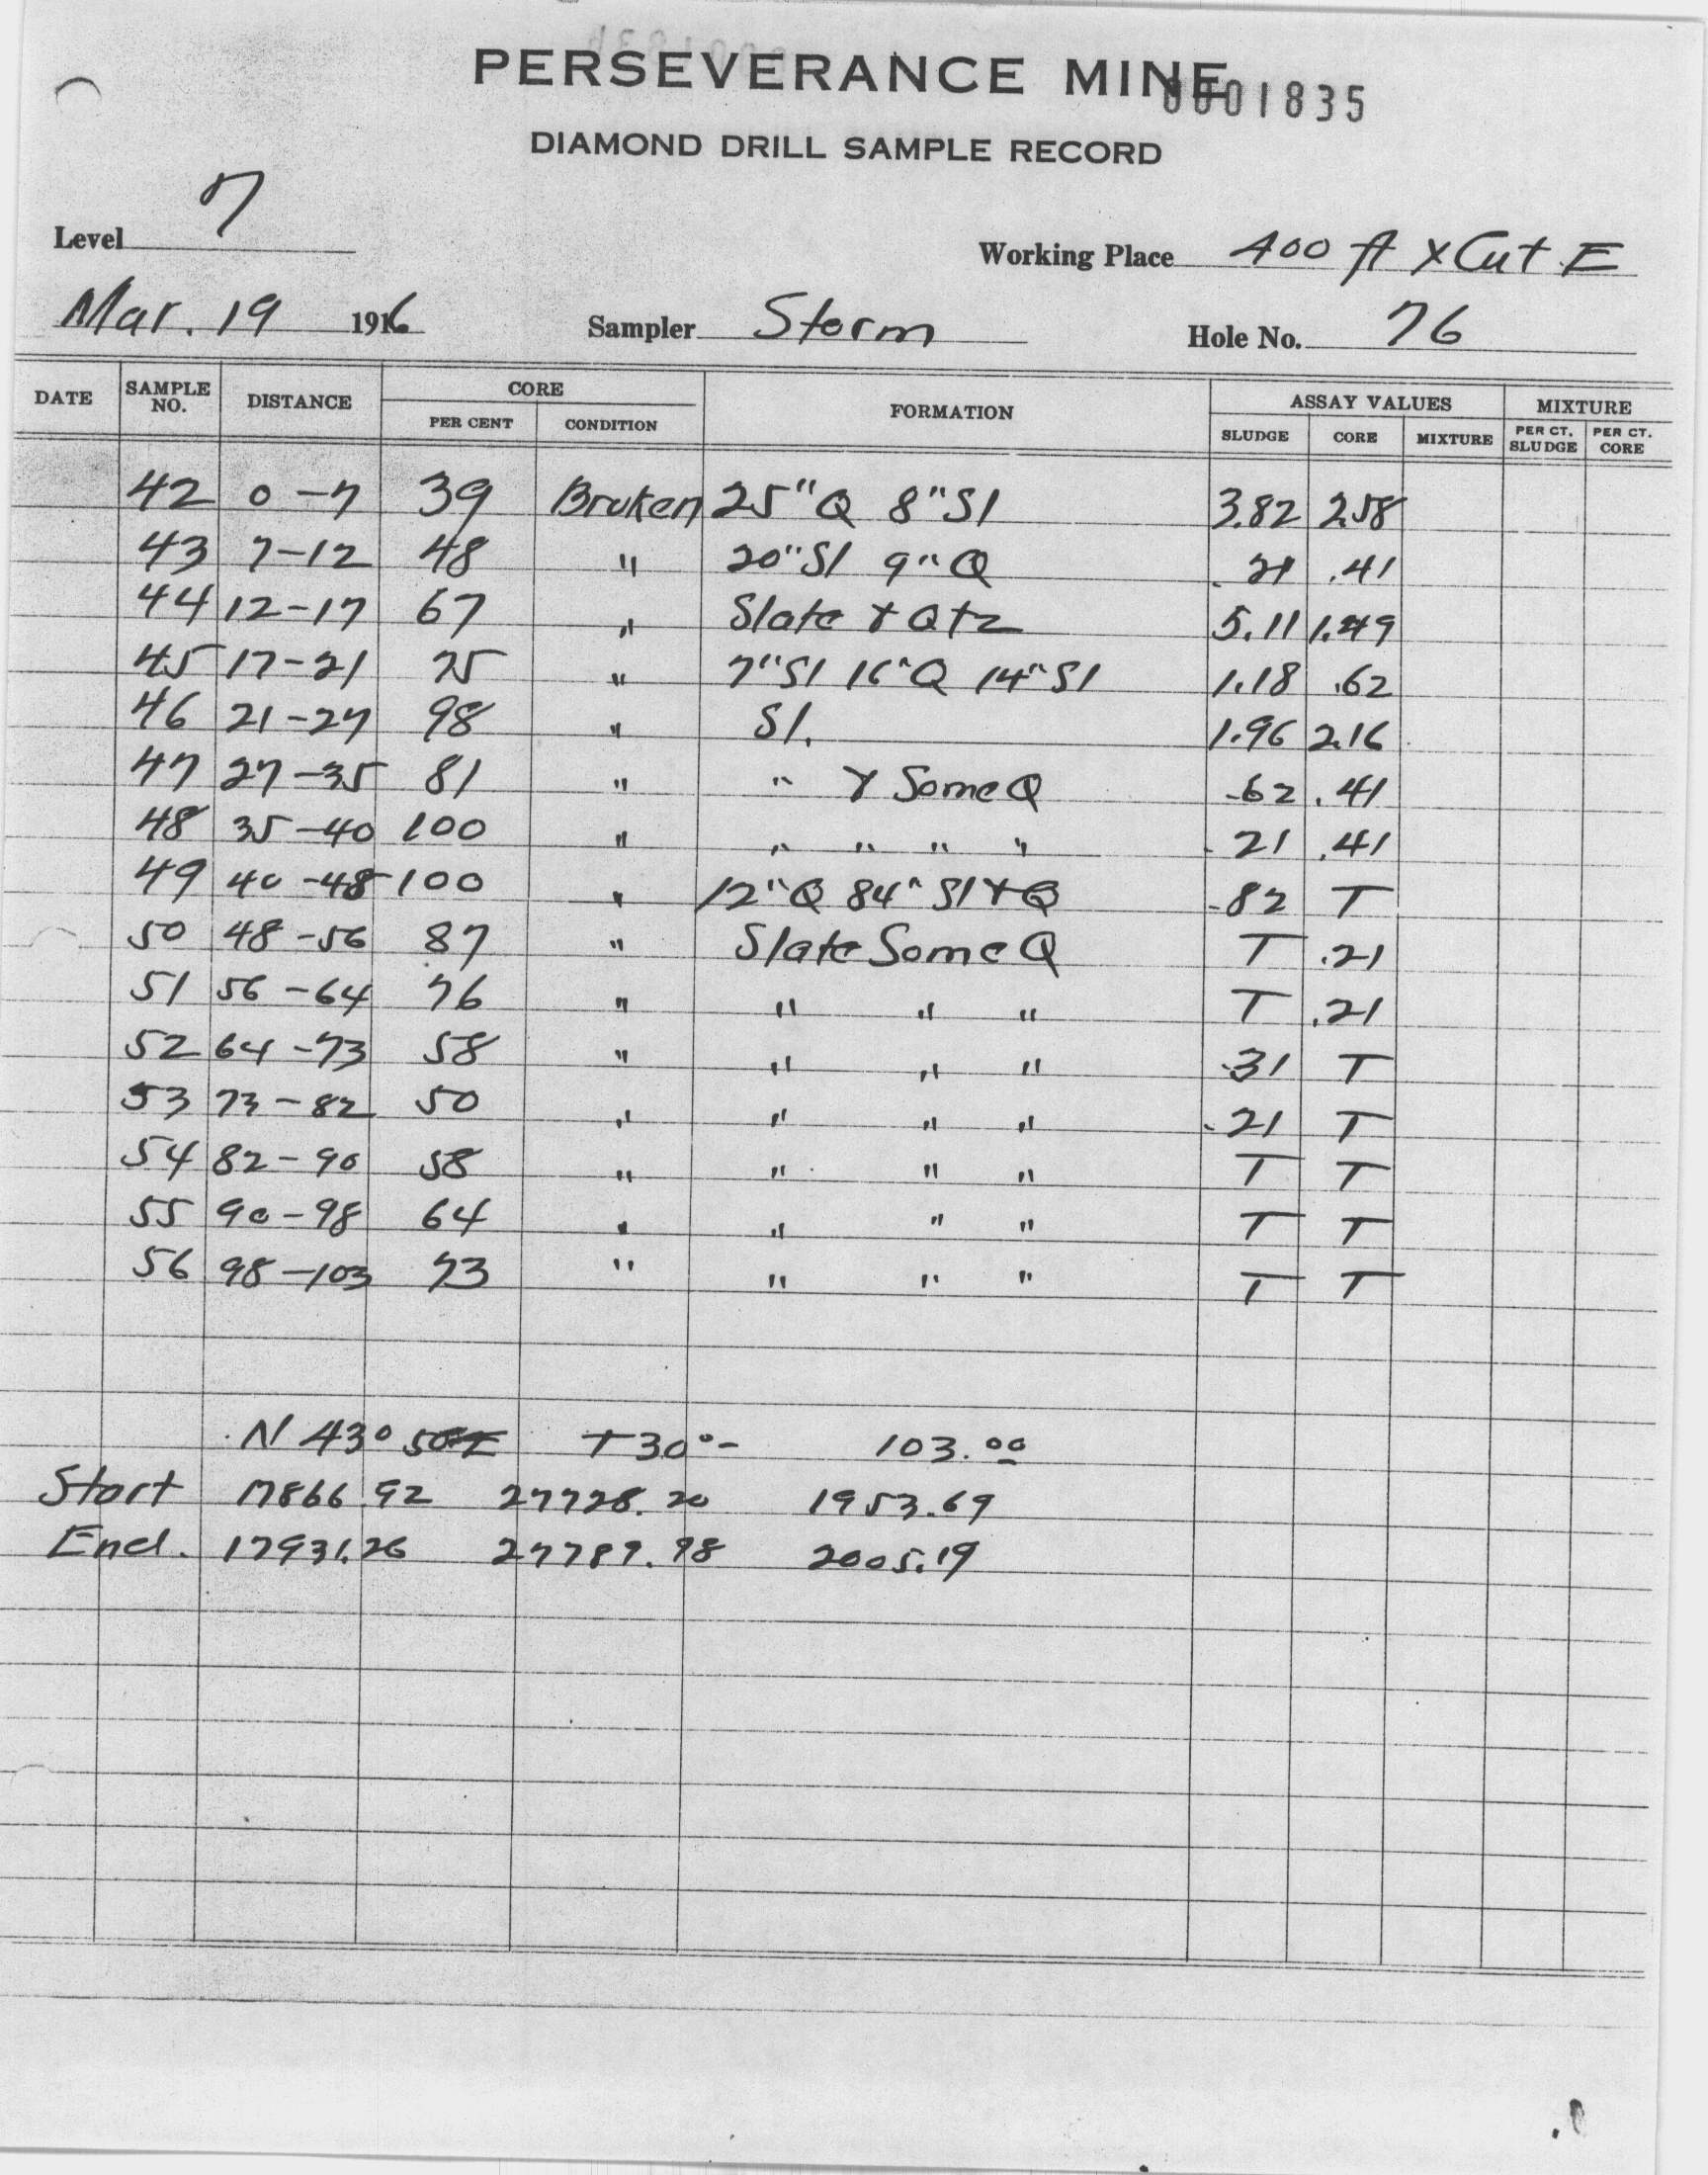 PERSEVERANCE MINE
0001835
DIAMOND DRILL SAMPLE RECORD
Level 7
Working Place 400 ft X Cut E
Mar. 19 1916 Sampler Storm Hole No. 76
DATE SAMPLE NO. DISTANCE CORE PER CENT CONDITION FORMATION ASSAY VALUES SLUDGE CORE MIXTURE MIXTURE PER CT. SLUDGE PER CT. CORE
42 0-7 39 Broken 25" Q 8" Sl 3.82 2.58
43 7-12 48 " 20" Sl 9" Q .21 .41
44 12-17 67 " Slate & Qtz 5.11 1.49
45 17-21 75 " 7" Sl 16" Q 14" Sl 1.18 .62
46 21-27 98 " Sl. 1.96 2.16
47 27-35 81 " " & Some Q .62 .41
48 35-40 100 " " " " " .21 .41
49 40-48 100 " 12" Q 84" Sl & Q .82 T
50 48-56 87 " Slate Some Q T .21
51 56-64 76 " " " " T .21
52 64-73 58 " " " " .31 T
53 73-82 50 " " " " .21 T
54 82-90 58 " " " " T T
55 90-98 64 " " " " T T
56 98-103 73 " " " " T T
N 43° 50' E T 30°- 103.00
Start 17866.92 27728.20 1953.69
End. 17931.26 27789.98 2005.19